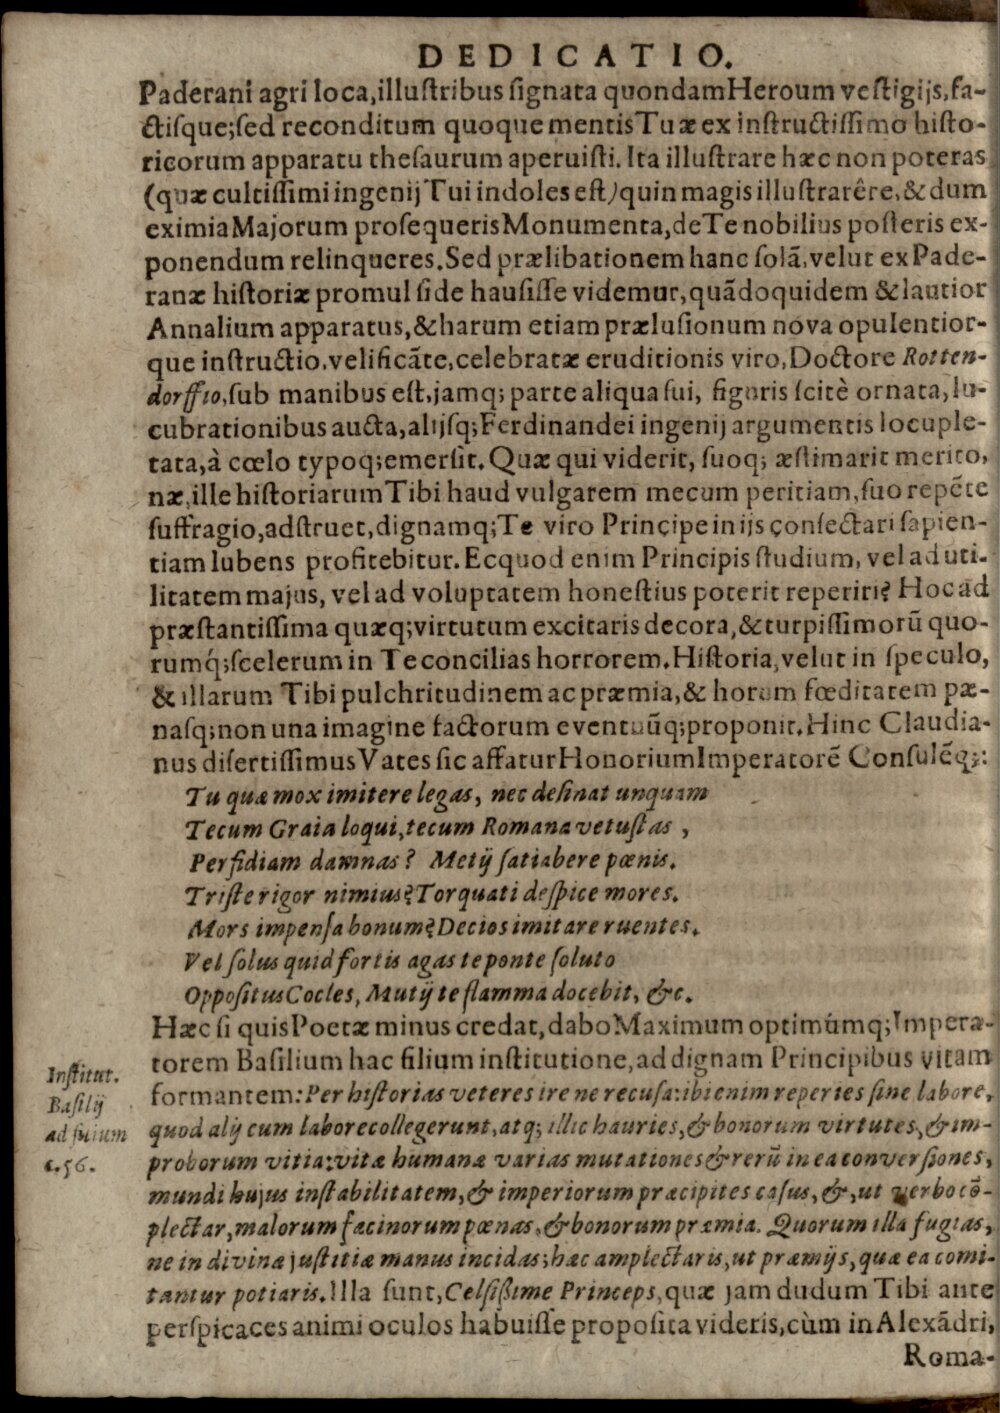 DEDICATIO.
Paderani agri loca, illuſtribus ſignata quondam Heroum veſtigijs, fa-
ctiſque; ſed reconditum quoque mentis Tuæ ex inſtructiſſimo hiſto-
ricorum apparatu theſaurum aperuiſti. Ita illuſtrare hæc non poteras
(quæ cultiſſimi ingenij Tui indoles eſt) quin magis illuſtrarêre, & dum
eximia Majorum proſequeris Monumenta, de Te nobilius poſteris ex-
ponendum relinqueres. Sed prælibationem hanc ſolā, velut ex Pade-
ranæ hiſtoriæ promulſide hauſiſſe videmur, quādoquidem & lautior
Annalium apparatus, & harum etiam præluſionum nova opulentior-
que inſtructio, velificāte, celebratæ eruditionis viro, Doctore Rotten-
dorffio, ſub manibus eſt, jamq; parte aliqua ſui, figuris ſcitè ornata, lu-
cubrationibus aucta, alijſq; Ferdinandei ingenij argumentis locuple-
tata, à cœlo typoq; emerſit. Quæ qui viderit, ſuoq; æſtimarit merito,
næ, ille hiſtoriarum Tibi haud vulgarem mecum peritiam, ſuo repẽte
ſuffragio, adſtruet, dignamq; Te viro Principe in ijs conſectari ſapien-
tiam lubens profitebitur. Ecquod enim Principis ſtudium, vel ad uti-
litatem majus, vel ad voluptatem honeſtius poterit reperiri? Hoc ad
præſtantiſſima quæq; virtutum excitaris decora, & turpiſſimorū quo-
rumq́; ſcelerum in Te concilias horrorem. Hiſtoria, velut in ſpeculo,
& illarum Tibi pulchritudinem ac præmia, & horum fœditatem pæ-
naſq; non una imagine factorum eventuūq; proponit. Hinc Claudia-
nus diſertiſſimus Vates ſic affatur Honorium Imperatorẽ Conſulẽq;:
Tu quæ mox imitere legas, nec deſinat unquam
Tecum Graia loqui, tecum Romana vetuſtas,
Perfidiam damnas? Metij ſatiabere pœnis.
Triſte rigor nimius? Torquati deſpice mores.
Mors impenſa bonum? Decios imitare ruentes.
Vel ſolus quid fortis agas te ponte ſoluto
Oppoſitus Cocles, Mutij te flamma docebit, &c.
Hæc ſi quis Poetæ minus credat, dabo Maximum optimúmq; Impera-
torem Baſilium hac filium inſtitutione, ad dignam Principibus vitam
formantem: Per hiſtorias veteres ire ne recuſa: ibi enim reperies ſine labore,
quod alij cum labore collegerunt, atq; illic hauries, & bonorum virtutes, & im-
proborum vitia: vitæ humanæ varias mutationes & rerū in ea converſiones,
mundi hujus inſtabilitatem, & imperiorum præcipites caſus, &, ut verbo cō-
plectar, malorum facinorum pœnas, & bonorum præmia. Quorum illa fugias,
ne in divinæ juſtitiæ manus incidas; hæc amplectaris, ut præmijs, quæ ea comi-
tantur potiaris. Illa ſunt, Celſiſsime Princeps, quæ jam dudum Tibi ante
perſpicaces animi oculos habuiſſe propoſita videris, cùm in Alexādri,
Roma-
Inſtitut.
Baſilij
ad ſuium
c. 56.